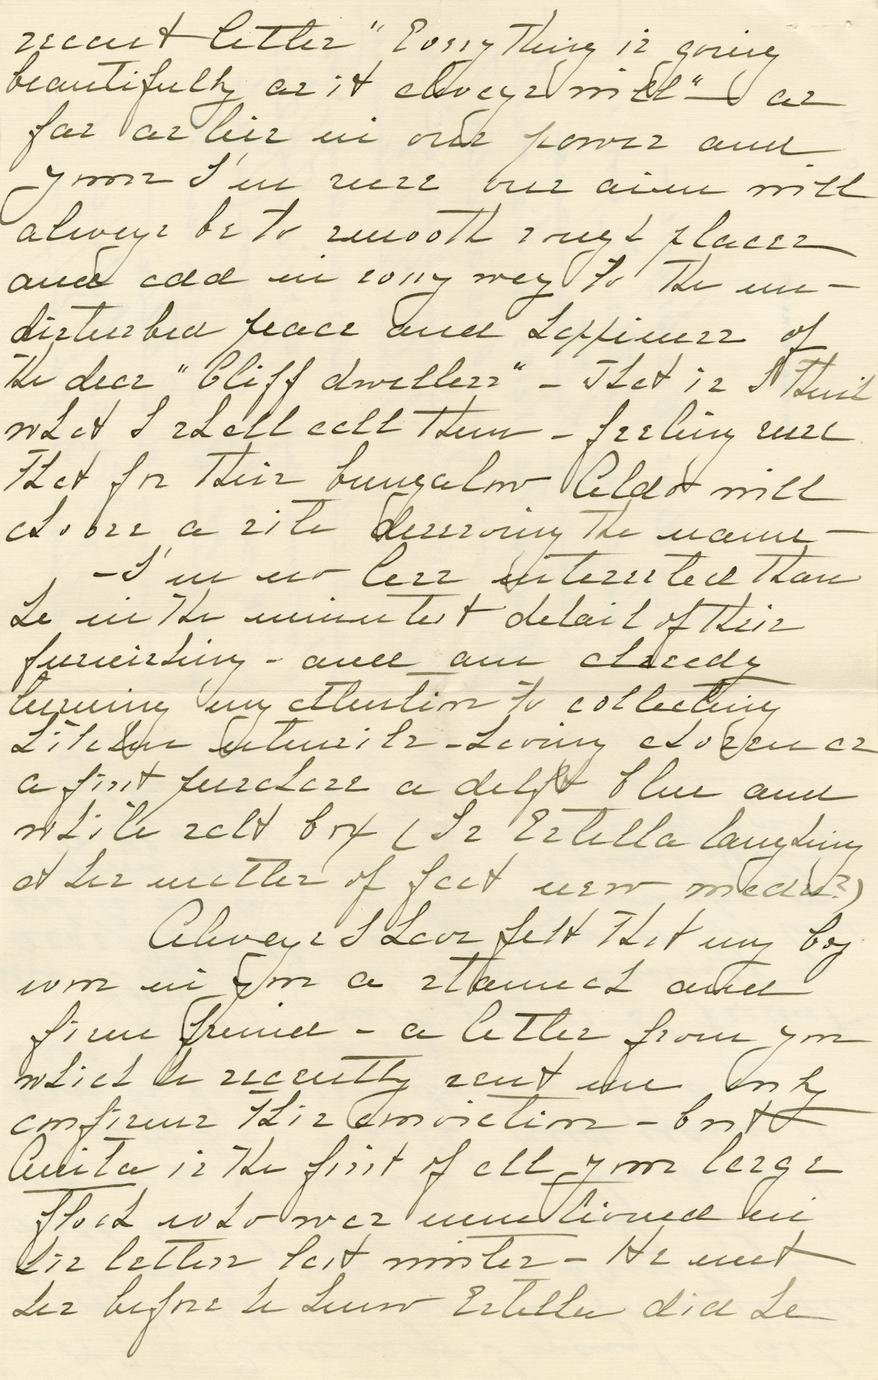 recent letter "Everything is going
beautifully as it always will" — as
far as lies in our power and
yours I'm sure our aim will
always be to smooth rough places
and add in every way to the un-
disturbed peace and happiness of
the dear "Cliff dwellers" - That is I think
what I shall call them - feeling sure
that for their bungalow Aldo will
choose a site deserving the name —
- I'm no less interested than
he in the minutest detail of their
furnishing - and am already
turning my attention to collecting
kitchen utensils - having chosen as
a first purchase a delft blue and
white salt box (Is Estella laughing
at her matter of fact new madre?)
Always I have felt that my boy
won in you a staunch and
firm friend - a letter from you
which he recently sent me only
confirms this conviction - but
Anita is the first of all your large
flock who was mentioned in
his letters last winter - He met
her before he knew Estella did he